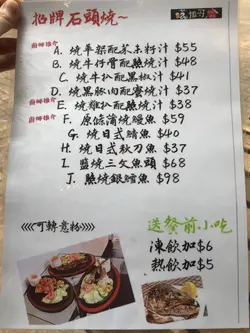 招牌石頭燒~
廚師推介
A. 燒羊架配芥末籽汁 $55
B. 燒牛仔骨配燒汁 $48
C. 燒牛扒配黑椒汁 $41
D. 燒黑豚肉配蜜燒汁 $37
廚師推介
E. 燒雞扒配燒汁 $38
廚師推介
F. 原條蒲燒鰻魚 $59
G. 燒日式鯖魚 $40
H. 燒日式秋刀魚 $37
I. 鹽燒三文魚頭 $68
J. 燒銀鱈魚 $98
<<<<可轉意粉>>>>
送餐前小吃
凍飲加$6
熱飲加$5